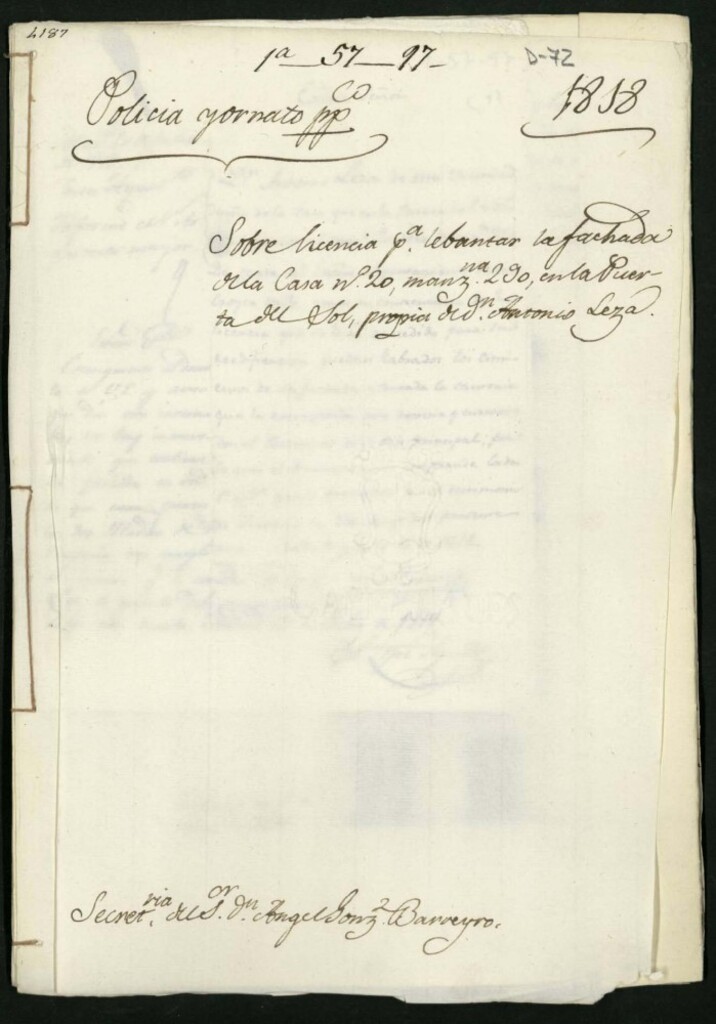 4187
1ª—57—97—
D-72
Policia y ornato pp.co
1818
Sobre licencia p.ª lebantar la fachada
de la Casa n.º 20, manz.na 290, en la Puer-
ta del Sol, propia de d.n Antonio Leza.
Secret.ria del S.or D.n Angel Gonz.z Barreyro.